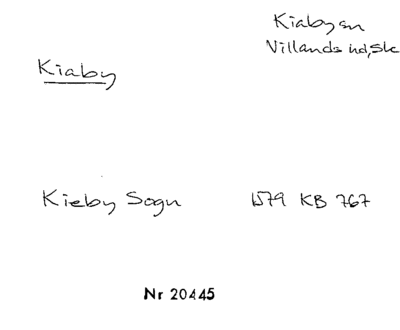 Kiaby sn
Villands hd, Sk
Kiaby
Kieby Sogn 1579 KB 767
Nr 20445